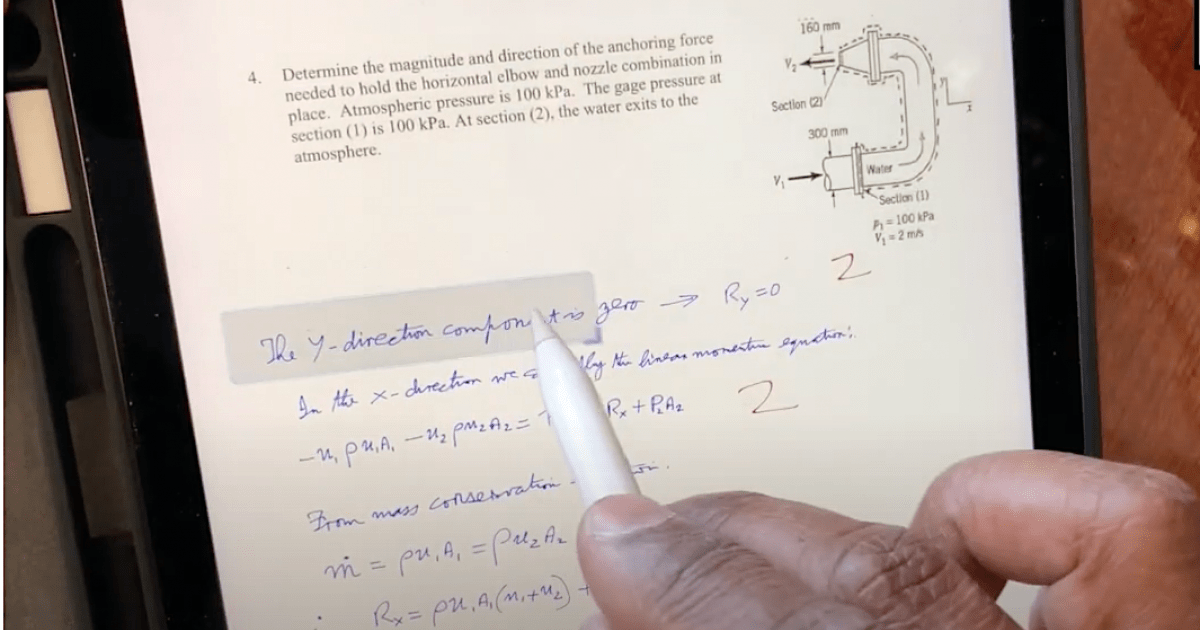 4. Determine the magnitude and direction of the anchoring force
needed to hold the horizontal elbow and nozzle combination in
place. Atmospheric pressure is 100 kPa. The gage pressure at
section (1) is 100 kPa. At section (2), the water exits to the
atmosphere.
160 mm
V₂
Section (2)
y
x
300 mm
V₁
Water
Section (1)
P₁ = 100 kPa
V₁ = 2 m/s
2
The y-direction component is zero → Ry=0
In the x-direction we the linear momentum equation:
-u₁ρu₁A₁ -u₂ρu₂A₂ = Rx + P₂A₂
2
From mass conservation
ṁ = ρu₁A₁ = ρu₂A₂
Rx = ρu₁A₁(u₁+u₂) +